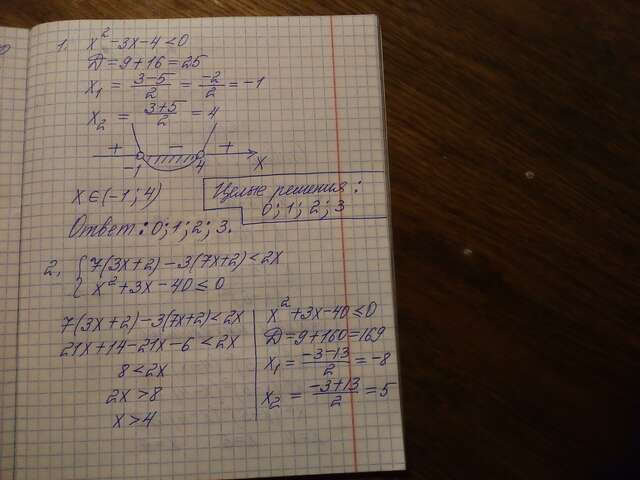 1. x² - 3x - 4 < 0
D = 9 + 16 = 25
x₁ = (3-5)/2 = -2/2 = -1
x₂ = (3+5)/2 = 4
+ - +
-1 4 x
x ∈ (-1; 4)
Целые решения:
0; 1; 2; 3
Ответ: 0; 1; 2; 3.
2. { 7(3x+2) - 3(7x+2) < 2x
x² + 3x - 40 ≤ 0
7(3x+2) - 3(7x+2) < 2x
21x + 14 - 21x - 6 < 2x
8 < 2x
2x > 8
x > 4
x² + 3x - 40 ≤ 0
D = 9 + 160 = 169
x₁ = (-3-13)/2 = -8
x₂ = (-3+13)/2 = 5